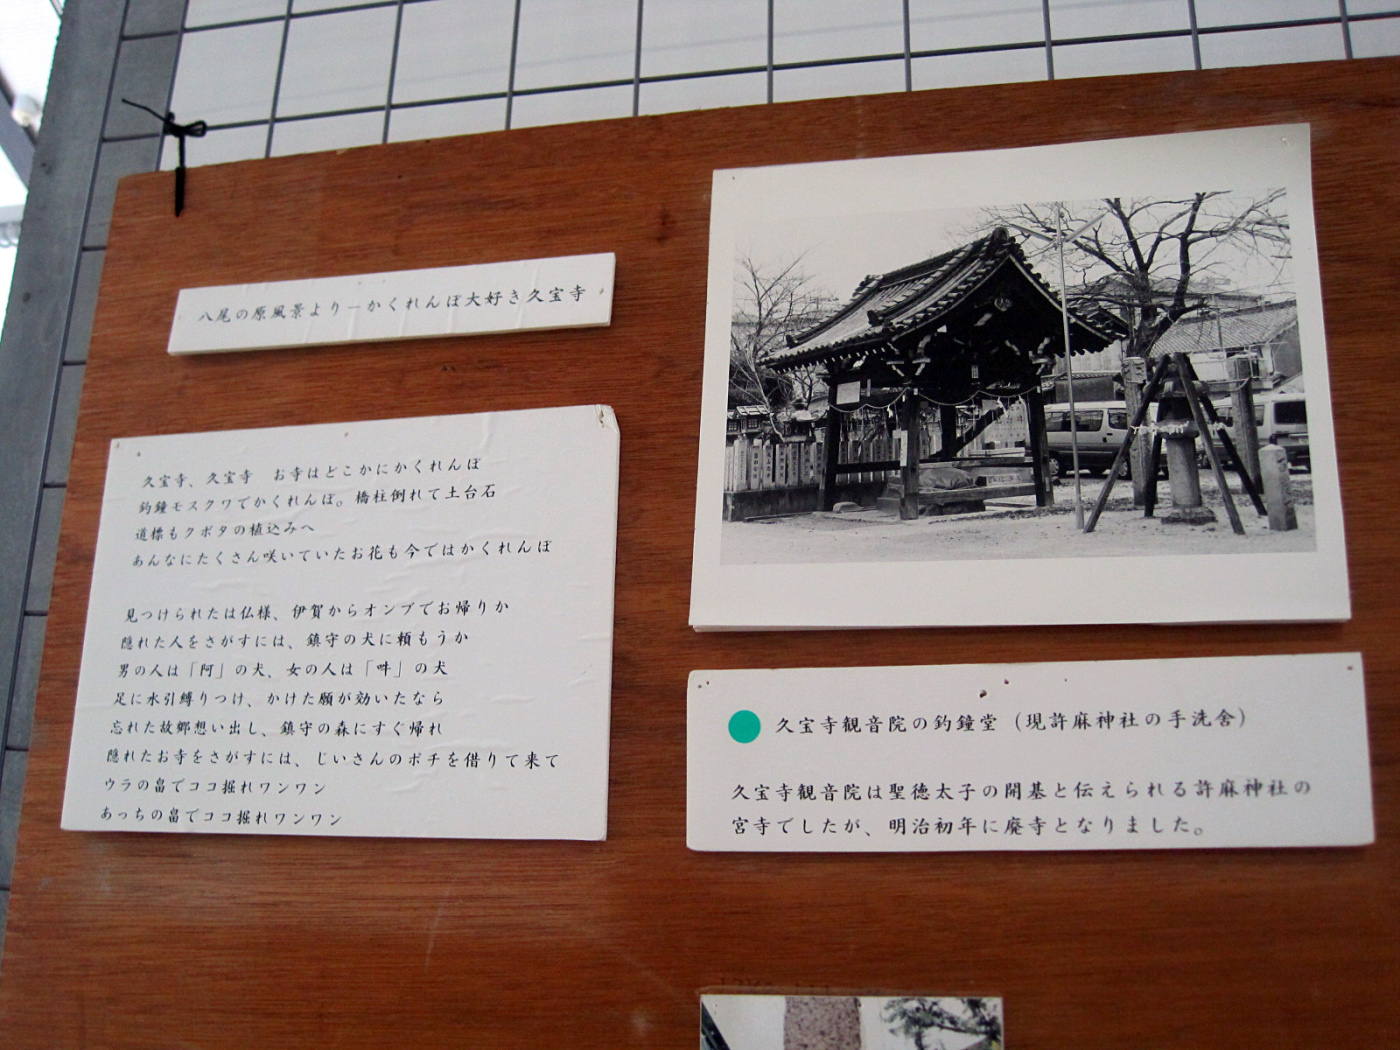 八尾の原風景より－かくれんぼ大好き久宝寺
久宝寺、久宝寺　お寺はどこかにかくれんぼ
釣鐘モスクワでかくれんぼ。橋柱倒れて土台石
道標もクボタの植込みへ
あんなにたくさん咲いていたお花も今ではかくれんぼ
見つけられたは仏様、伊賀からオンブでお帰りか
隠れた人をさがすには、鎮守の犬に頼もうか
男の人は「阿」の犬、女の人は「吽」の犬
足に水引縛りつけ、かけた願が効いたなら
忘れた故郷想い出し、鎮守の森にすぐ帰れ
隠れたお寺をさがすには、じいさんのポチを借りて来て
ウラの畠でココ掘れワンワン
あっちの畠でココ掘れワンワン
久宝寺観音院の釣鐘堂（現許麻神社の手洗舎）
久宝寺観音院は聖徳太子の開基と伝えられる許麻神社の
宮寺でしたが、明治初年に廃寺となりました。